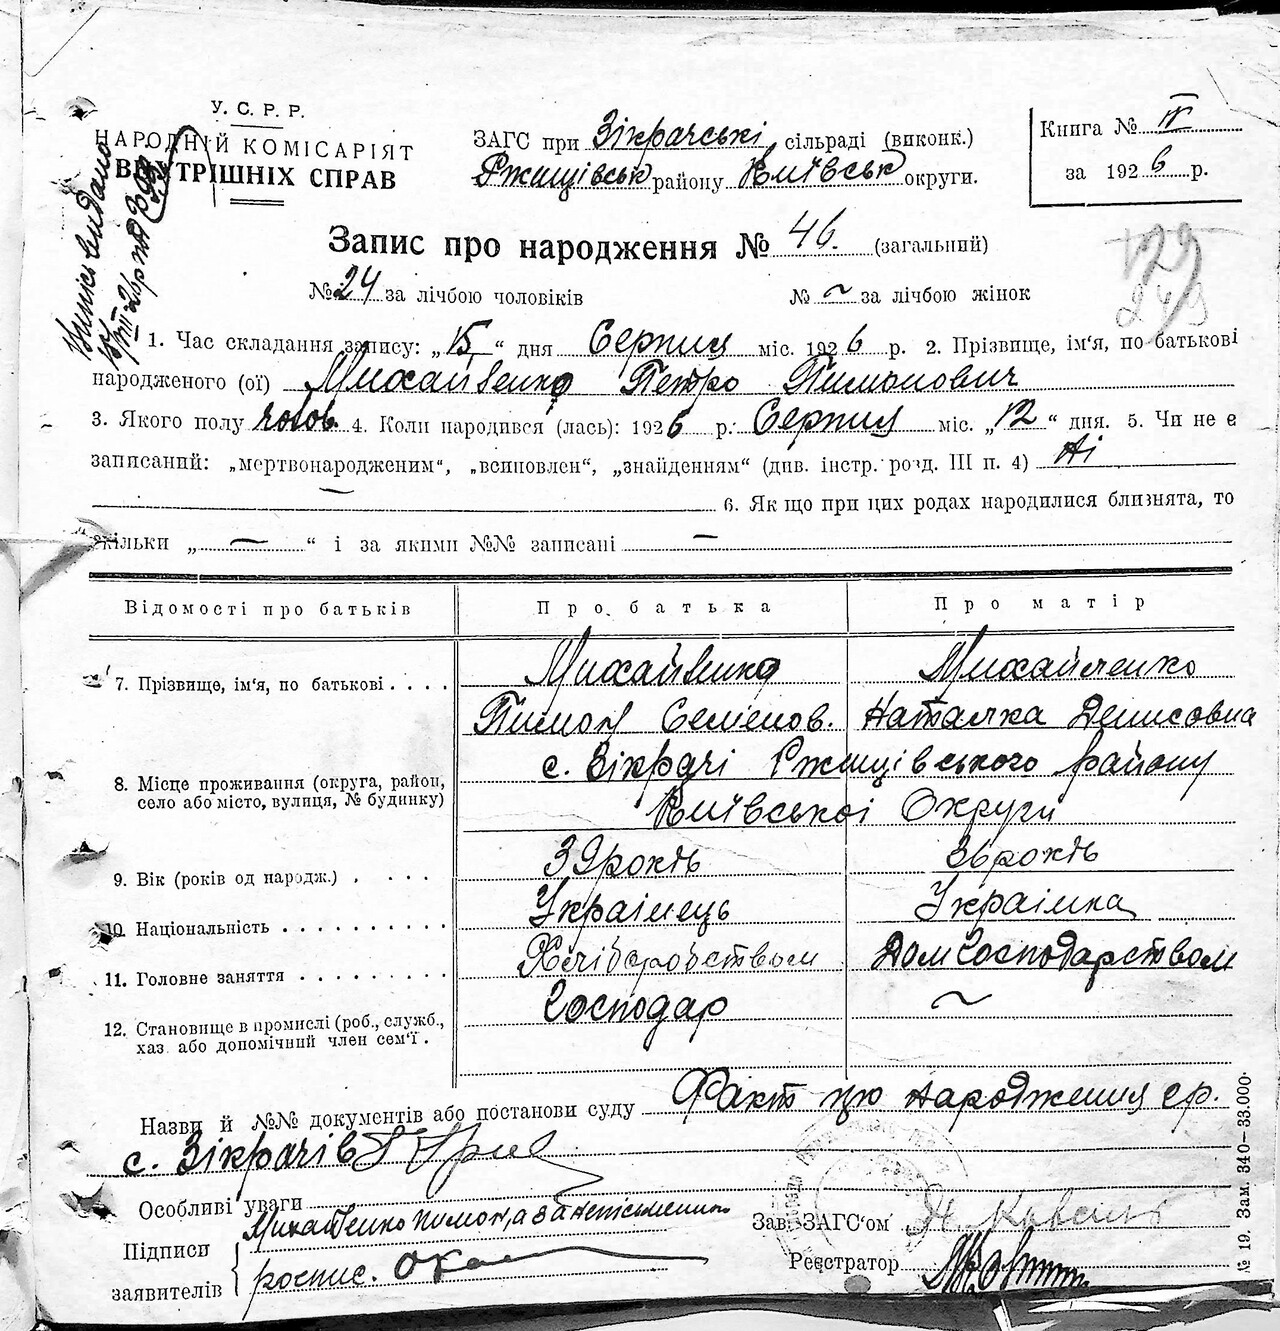 У. С. Р. Р.
НАРОДНІЙ КОМІСАРІЯТ
ВНУТРІШНІХ СПРАВ
ЗАГС при Зікрачські сільраді (виконк.)
Ржищівськ району Київськ округи.
Книга № ІІ
за 1926 р.
Запис про народження № 46. (загальний)
№ 24 за лічбою чоловіків № ~ за лічбою жінок
1. Час складання запису: „15“ дня Серпня міс. 1926 р. 2. Прізвище, ім'я, по батькові
народженого (ої) Михайленко Петро Пимонович
3. Якого полу чолов. 4. Коли народився (лась): 1926 р. Серпня міс. „12“ дня. 5. Чи не є
записаний: „мертвонародженим“, „всиновлен“, „знайденням“ (див. інстр. розд. III п. 4) Ні
— 6. Як що при цих родах народилися близнята, то
скільки „ — “ і за якими №№ записані —
Відомості про батьків Про батька Про матір
7. Прізвище, ім'я, по батькові . . . . Михайленко Михайленко
Пимон Семенов. Наталка Денисовна
8. Місце проживання (округа, район, село або місто, вулиця, № будинку) с. Зікрачі Ржищівського району
Київської Округи
9. Вік (років од народж.) . . . . 39 років 36 років
10. Національність . . . . . . . . . . Українець Українка
11. Головне заняття . . . . . . . . . Хліборобством Домгосподарством
12. Становище в промислі (роб., служб., Господар ~
хаз. або допомічний член сем'ї .
Назви й №№ документів або постанови суду Факт цю народження ср.
с. Зікрачів
Особливі уваги
Підписи Михайленко Пимон, а за неписьменни
заявителів роспис.
Зав. ЗАГС'ом Коваль
Реєстратор
№ 19. Зам. 340—33.000.